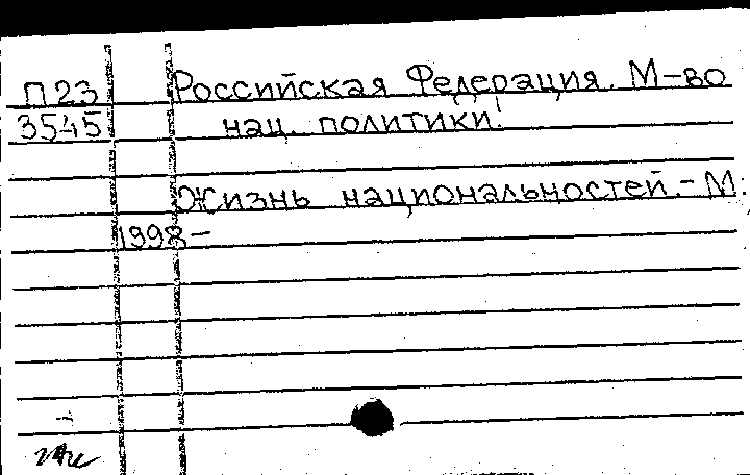 П23 Российская Федерация. М-во
3545 нац. политики!
Жизнь национальностей. - М.
1998-